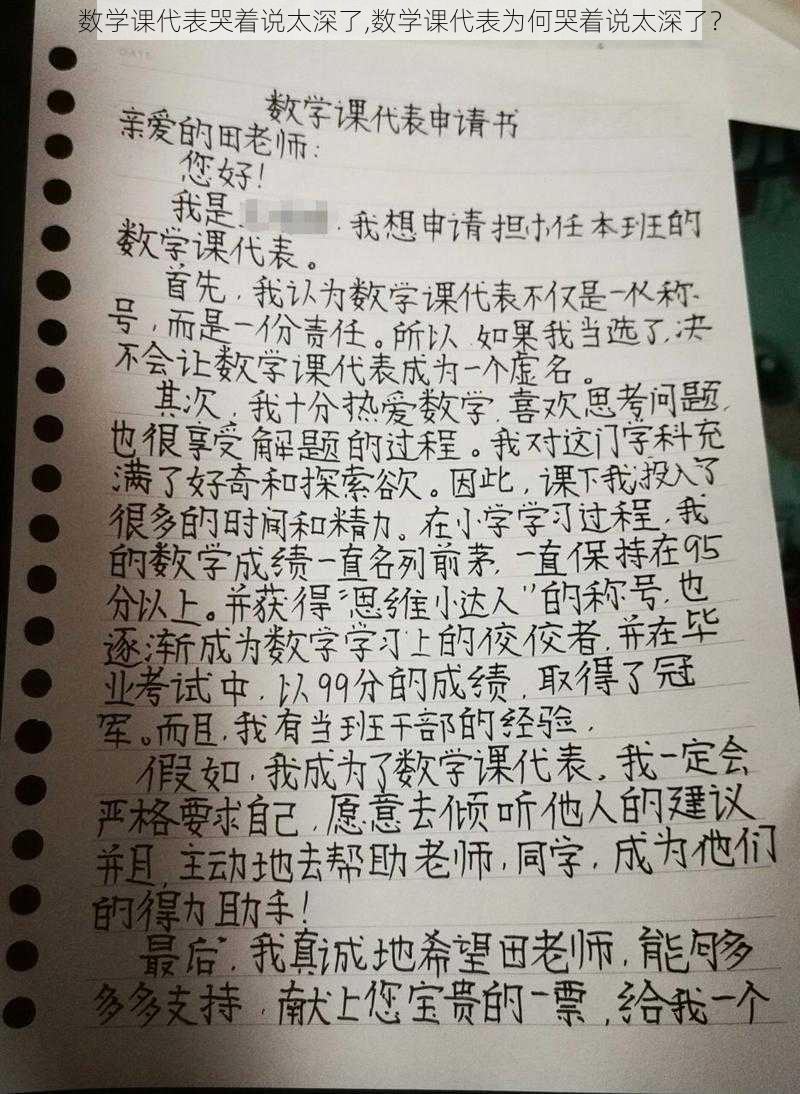 数学课代表哭着说太深了,数学课代表为何哭着说太深了?
DATE
数学课代表申请书
亲爱的田老师:
您好!
我是 ,我想申请担任本班的
数学课代表。
首先,我认为数学课代表不仅是一个称
号,而是一份责任。所以,如果我当选了,决
不会让数学课代表成为一个虚名。
其次,我十分热爱数学,喜欢思考问题,
也很享受解题的过程。我对这门学科充
满了好奇和探索欲。因此,课下我投入了
很多的时间和精力。在小学学习过程,我
的数学成绩一直名列前茅,一直保持在95
分以上。并获得“思维小达人”的称号,也
逐渐成为数学学习上的佼佼者,并在毕
业考试中,以99分的成绩,取得了冠
军。而且,我有当班干部的经验,
假如,我成为了数学课代表。我一定会
严格要求自己,愿意去倾听他人的建议
并且,主动地去帮助老师,同学,成为他们
的得力助手!
最后,我真诚地希望田老师,能够多
多多支持,献上您宝贵的一票,给我一个